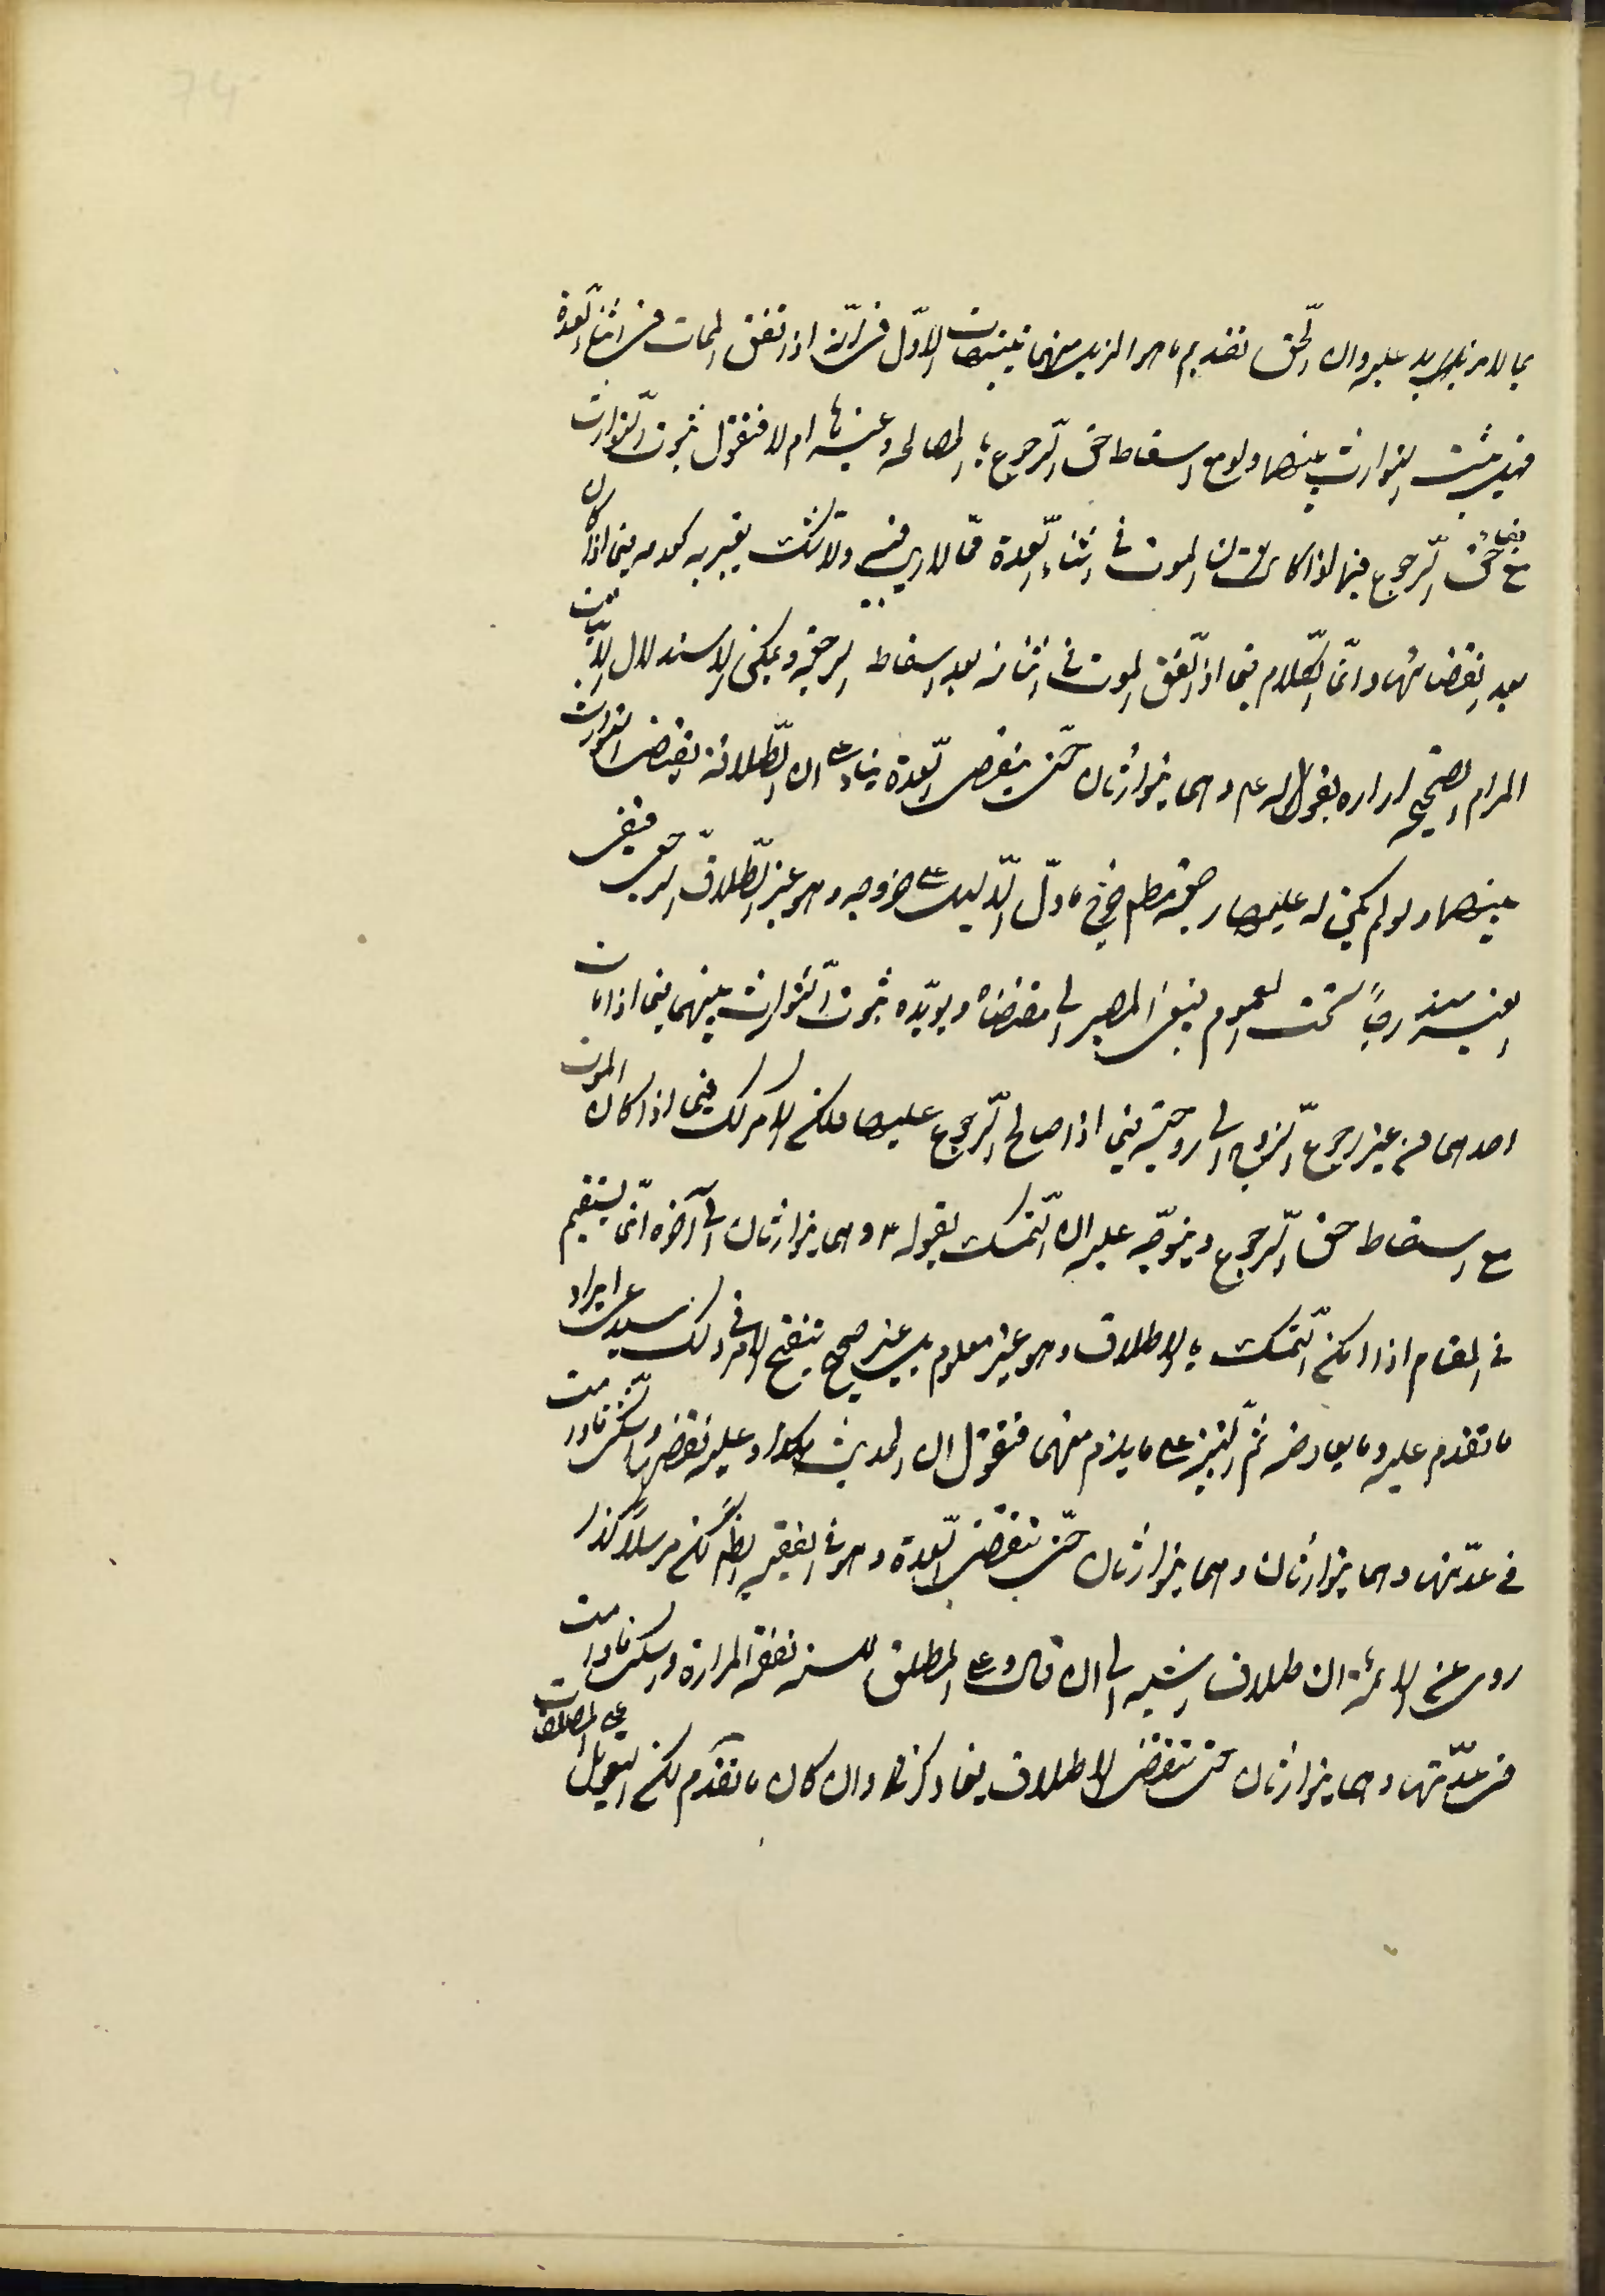 74
بما لا مزيد عليه وان الحق تقديم ما هو المزيد منهما تنبيهات الاول في انه اذا اتفق الممات في اثناء العدة
فهل يثبت التوارث بينهما ولو مع اسقاط حق الرجوع بالمصالحة وغيرها ام لا فنقول ثبوت التوارث
مع بقاء حق الرجوع فيها اذا كان الموت في اثناء العدة مما لا ريب فيه ولا شك يعتريه كعدمه فيما اذا كان
بعد انقضائها وانما الكلام فيما اذا اتفق الموت في اثنائه بعد اسقاط الرجعة ويمكن الاستدلال لاثبات
المرام الصحيح زرارة بقوله ع وهما يتوارثان حتى ينقضي العدة بناء على ان اطلاقه يقتضي التوارث
بينهما ولو لم يكن له عليها رجعة مطم خرج ما دل الدليل على خروجه وهو غير الطلاق الرجعي فيبقى
الغير مندرجاً تحت العموم فينبغي المصير الى مقتضاه ويؤيده ثبوت التوارث بينهما فيما اذا مات
احدهما من غير رجوع الزوج الى زوجته فيما اذا صالح الرجوع عليها فلكن الامر كك فيما اذا كان الموت
مع اسقاط حق الرجوع ويتوجه عليه ان التمسك بقوله ع وهما يتوارثان الى آخره انما يستقيم
في المقام اذا امكن التمسك بالاطلاق وهو غير معلوم بل غير صحيح تنقيح الامر في ذلك يستدعي ايراد
ما تقدم عليه وما يعارضه ثم التنبيه على ما يلزم منهما فنقول ان الحديث هكذا وعليه نفقتها والسكنى ما دامت
في عدتها وهما يتوارثان وهما يتوارثان حتى تنقضي العدة وهو في الفقيه ايضا لكن مرسلا كذا
روى عن الائمة ان طلاق السنة الى ان قال وعلى المطلق للسنة نفقة المراة والسكنى ما دامت
في عدتها وهما يتوارثان حتى تنقضي الاطلاق فيما ذكرنا وان كان ما تقدم لكن التعويل على المطلقات